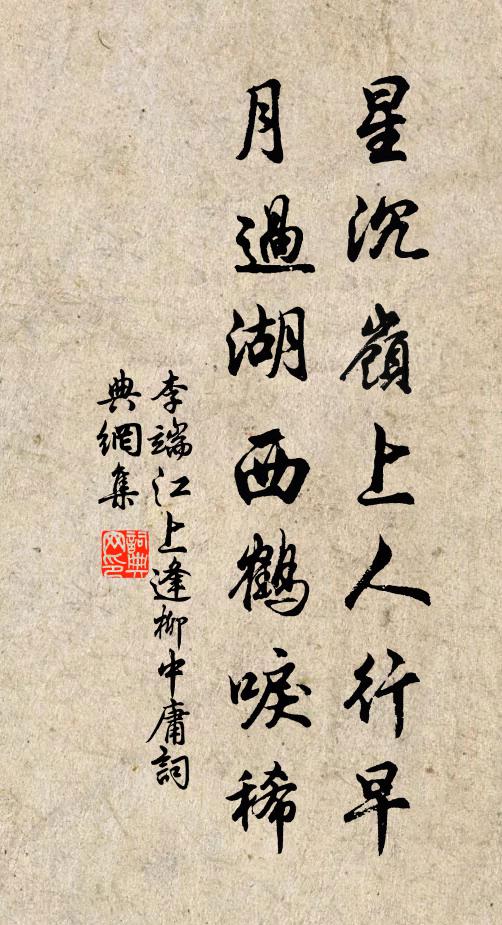 星沉嶺上人行早
月過湖西鶴唳稀
李端江上逢柳中庸詞
典網集
詞典
网印